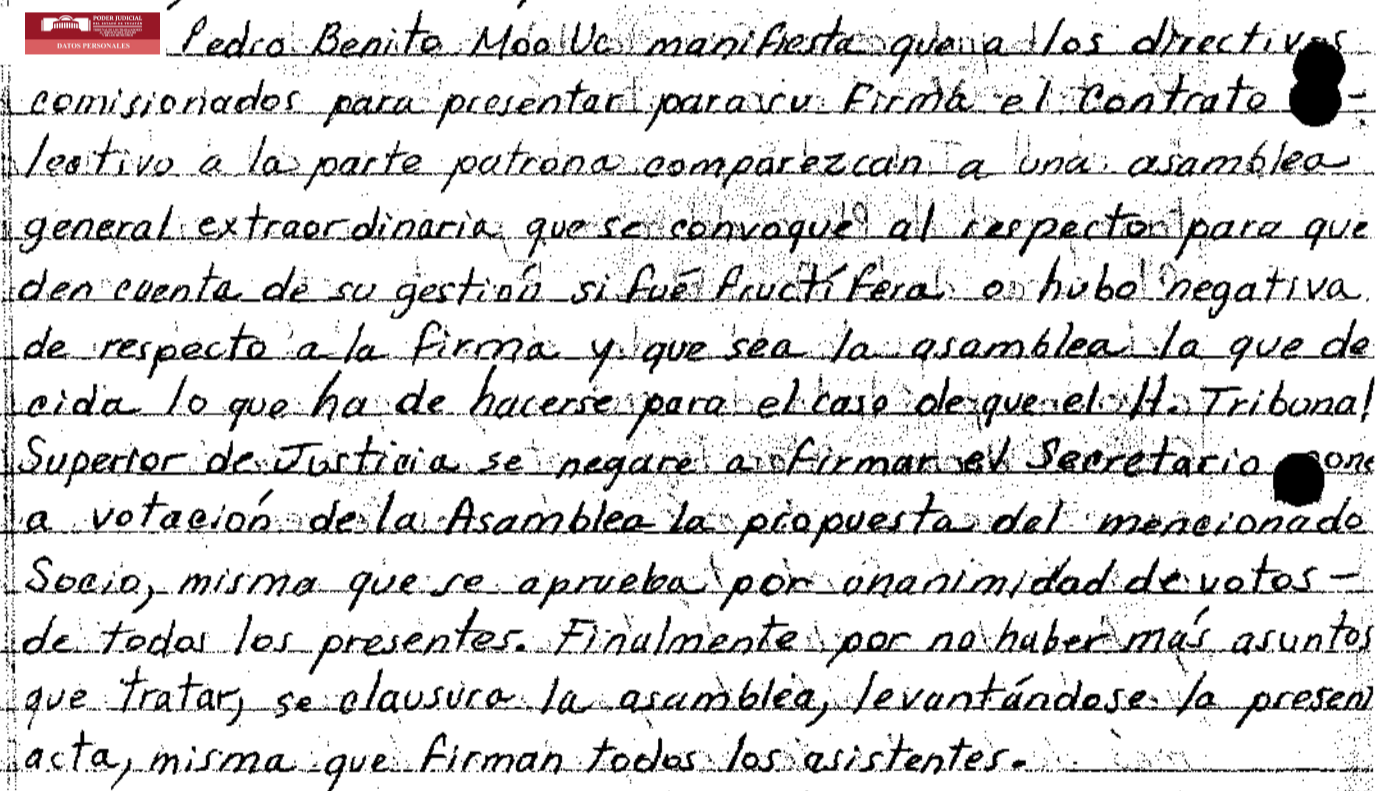 PODER JUDICIAL
DATOS PERSONALES
Pedro Benito Moo Uc manifiesta que a los directivos
comisionados para presentar para su Firma el Contrato -
lectivo a la parte patrona comparezcan a una asamblea
general extraordinaria que se convoque al respecto para que
den cuenta de su gestión si fué fructífera o hubo negativa
de respecto a la firma y que sea la asamblea la que de
cida lo que ha de hacerse para el caso de que el H. Tribunal
Superior de Justicia se negare a firmar el Secretario pone
a votación de la Asamblea la propuesta del mencionado
Socio, misma que se aprueba por unanimidad de votos -
de todos los presentes. Finalmente por no haber más asuntos
que tratar, se clausura la asamblea, levantándose la presen
acta, misma que firman todos los asistentes.